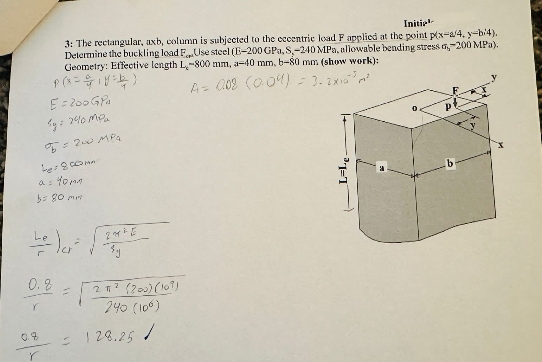 Initial
3: The rectangular, axb, column is subjected to the eccentric load F applied at the point p(x=a/4, y=b/4).
Determine the buckling load Fcr. Use steel (E=200 GPa, Sy=240 MPa, allowable bending stress σb=200 MPa).
Geometry: Effective length Le=800 mm, a=40 mm, b=80 mm (show work):
P(x = a/4, y = b/4)
A = 0.08 (0.04) = 3.2x10⁻³ m²
E = 200 GPa
Sy = 240 MPa
σb = 200 MPa
Le = 800 mm
a = 40 mm
b = 80 mm
y
F
x
o
P
y
x
L=Le
a
b
Le/r )cr = √(2π²E / Sy)
0.8/r = √(2π²(200)(10⁹) / 240(10⁶))
0.8/r = 128.25 ✓